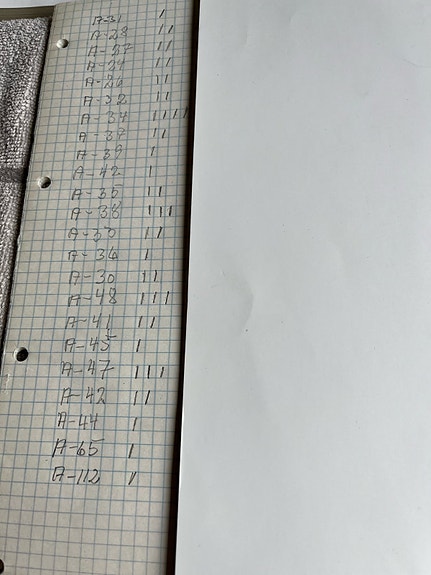 A-31 I
A-28 II
A-27 II
A-29 II
A-26 II
A-32 II
A-34 IIII
A-37 II
A-39 I
A-42 I
A-35 II
A-38 III
A-33 II
A-36 I
A-30 II
A-48 III
A-41 II
A-45 I
A-47 III
A-42 II
A-44 I
A-65 I
A-112 I